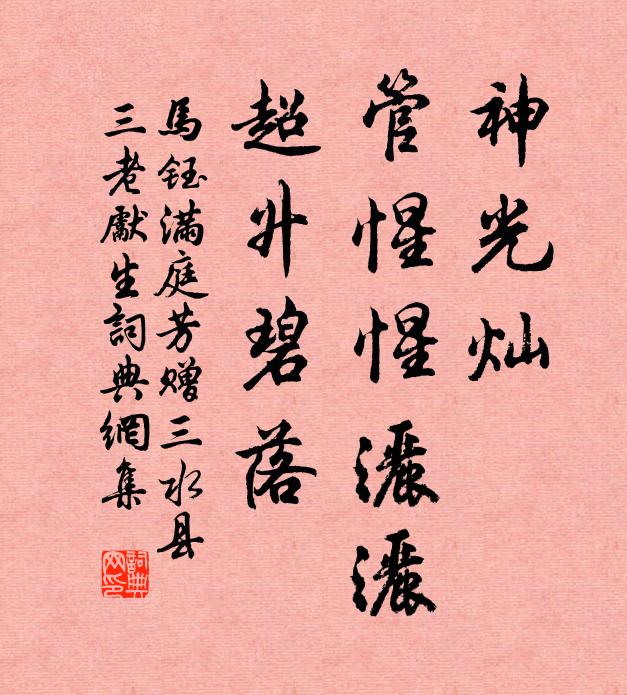 神光灿
管惺惺灑灑
超升碧落
馬鈺满庭芳赠三水县
三老獻生詞典網集
詞典
网印